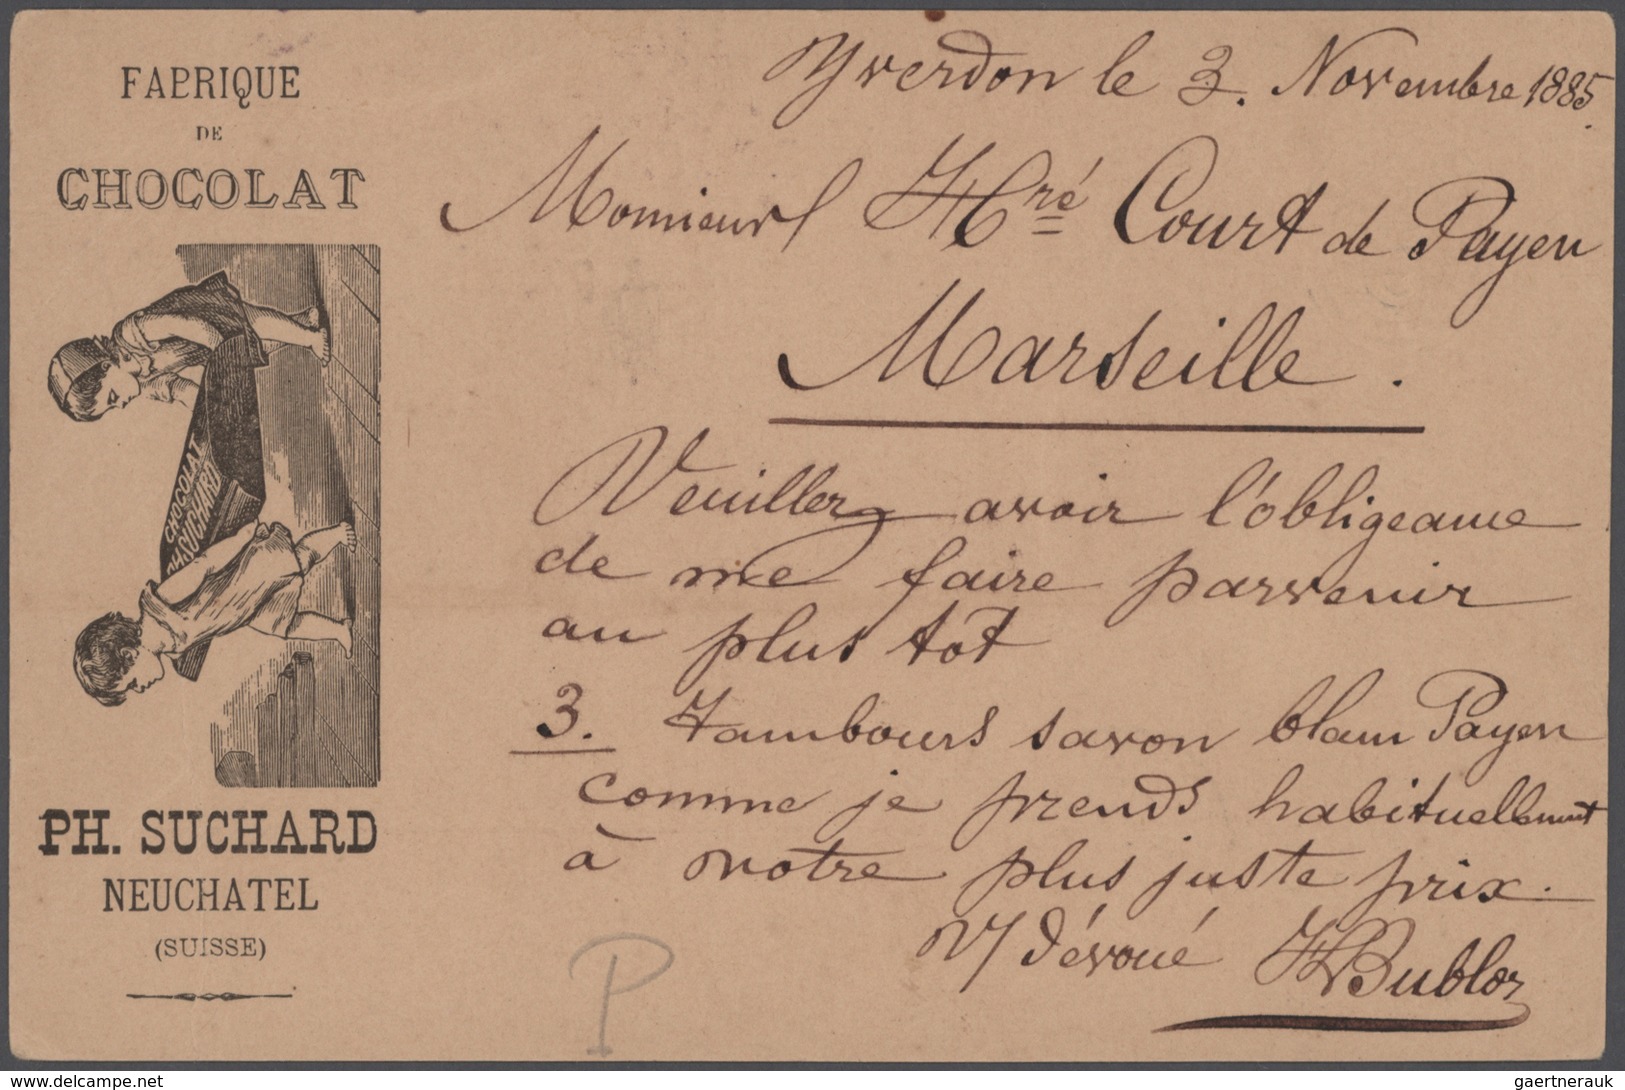 FABRIQUE
DE
CHOCOLAT
CHOCOLAT
PH. SUCHARD
PH. SUCHARD
NEUCHATEL
(SUISSE)
Yverdon le 3. Novembre 1885.
Monsieur Hré Court de Payen
Marseille.
Veuillez avoir l'obligeance
de me faire parvenir
au plus tôt
3. Tambours savon blanc Payen
comme je prends habituellement
à votre plus juste prix.
V/ dévoué
P
delcampe.net
gaertnerauk